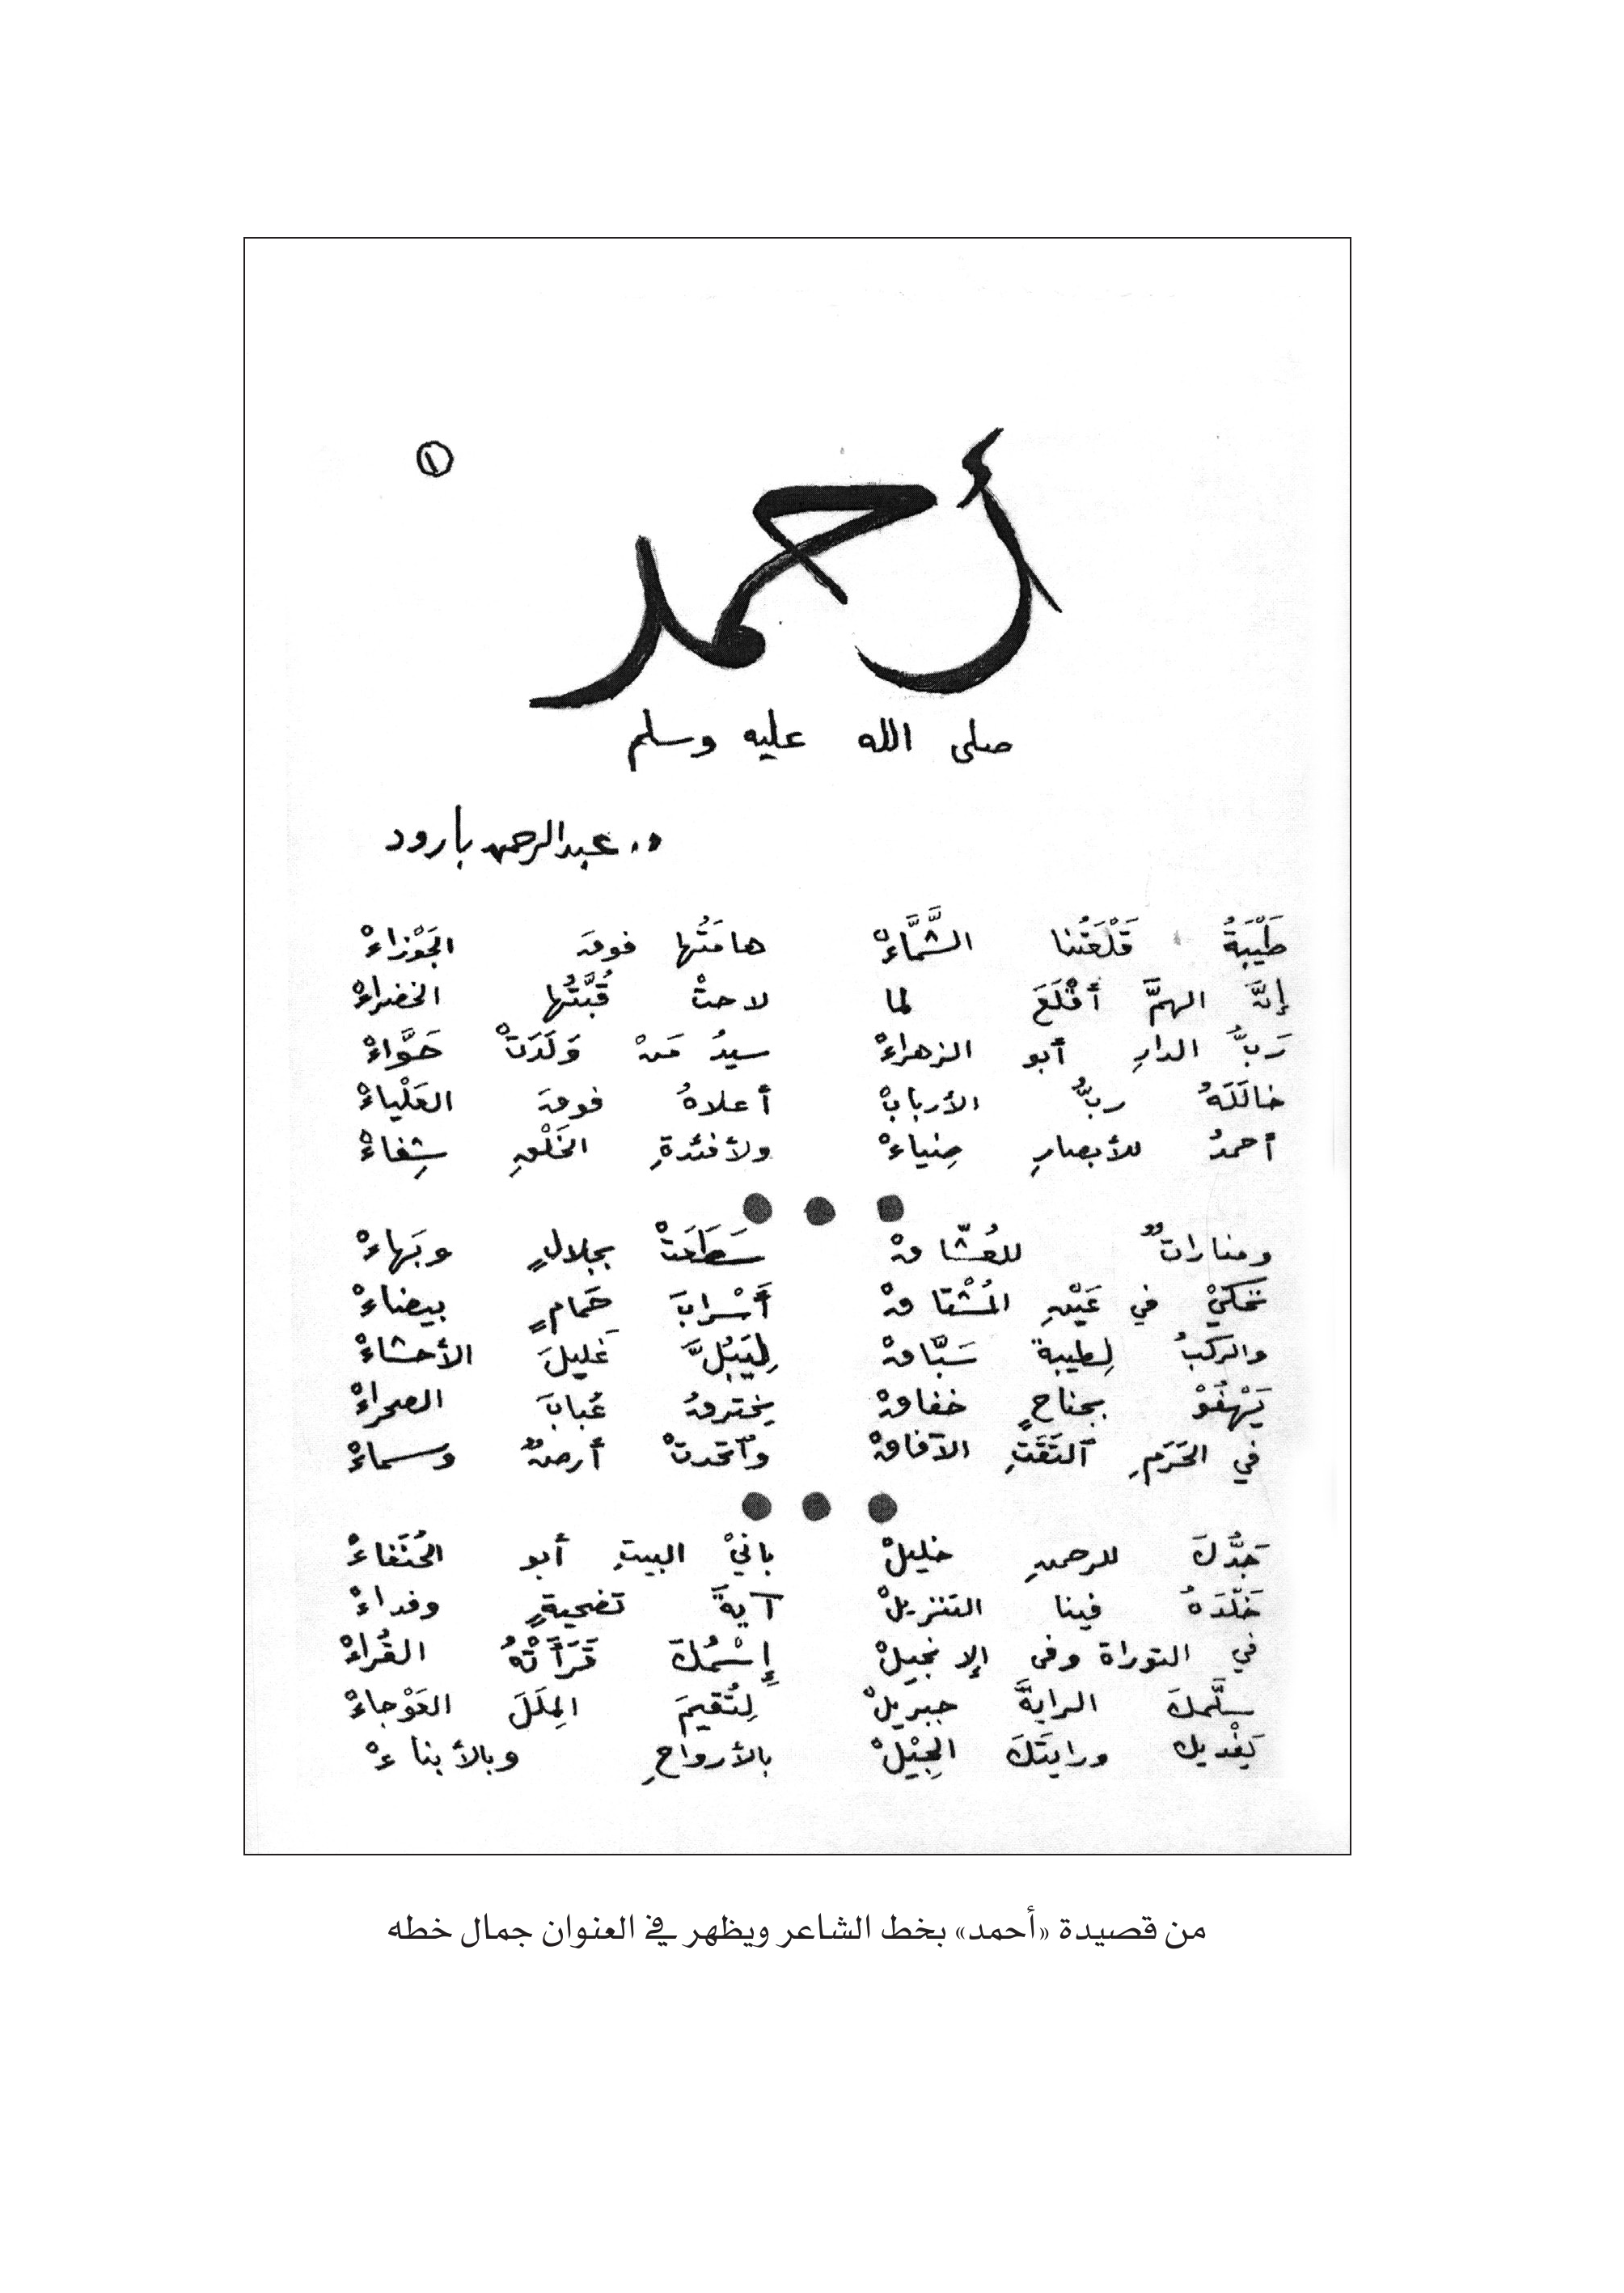 ①
أحمد
صلى الله عليه وسلم
د. عبدالرحمن بارود
طَيْبَةُ قَلْعَتُنا الشَّمَّاءْ هامَتُها فوقَ الجَوْزاءْ
إنَّ الهمَّ أقْلَعَ لما لاحتْ قُبَّتُها الخضراءْ
رَبُّ الدارِ أبو الزهراءْ سيدُ مَنْ وَلَدَتْ حَوَّاءْ
خالَلَهُ ربُّ الأربابْ أعلاهُ فوقَ العَلْياءْ
أحمدُ للأبصارِ ضِياءْ ولأفئدةِ الخَلْقِ شِفاءْ
ومناراتٌ للعُشّاقْ سَطَعَتْ بجلالٍ وبَهاءْ
تَحكيْ في عَيْنِ المُشْتاقْ أَسْرابَ حَمامٍ بيضاءْ
والركبُ لِطيبةَ سَبّاقْ لِيَبُلَّ غَليلَ الأحشاءْ
يَهْفُوْ بجناحٍ خفاقْ يخترقُ عُبابَ الصحراءْ
في الحَرَمِ ٱلتَقَتِ الآفاقْ وٱتحدتْ أرضٌ وسماءْ
جَدُّكَ للرحمنِ خليلْ بانيْ البيتِ أبو الحُنَفاءْ
خَلّدَهُ فينا التنزيلْ آيةَ تضحيةٍ وفداءْ
في التوراة وفى الإنجيلْ إِسْمُكَ قَرَأَتْهُ القُراءْ
سلَّمكَ الرايةَ جبريلْ لِتُقيمَ المِلَلَ العَوْجاءْ
يَفْديك ورايتَكَ الجِيْلْ بالأرواحِ وبالأبناءْ
من قصيدة «أحمد» بخط الشاعر ويظهر في العنوان جمال خطه